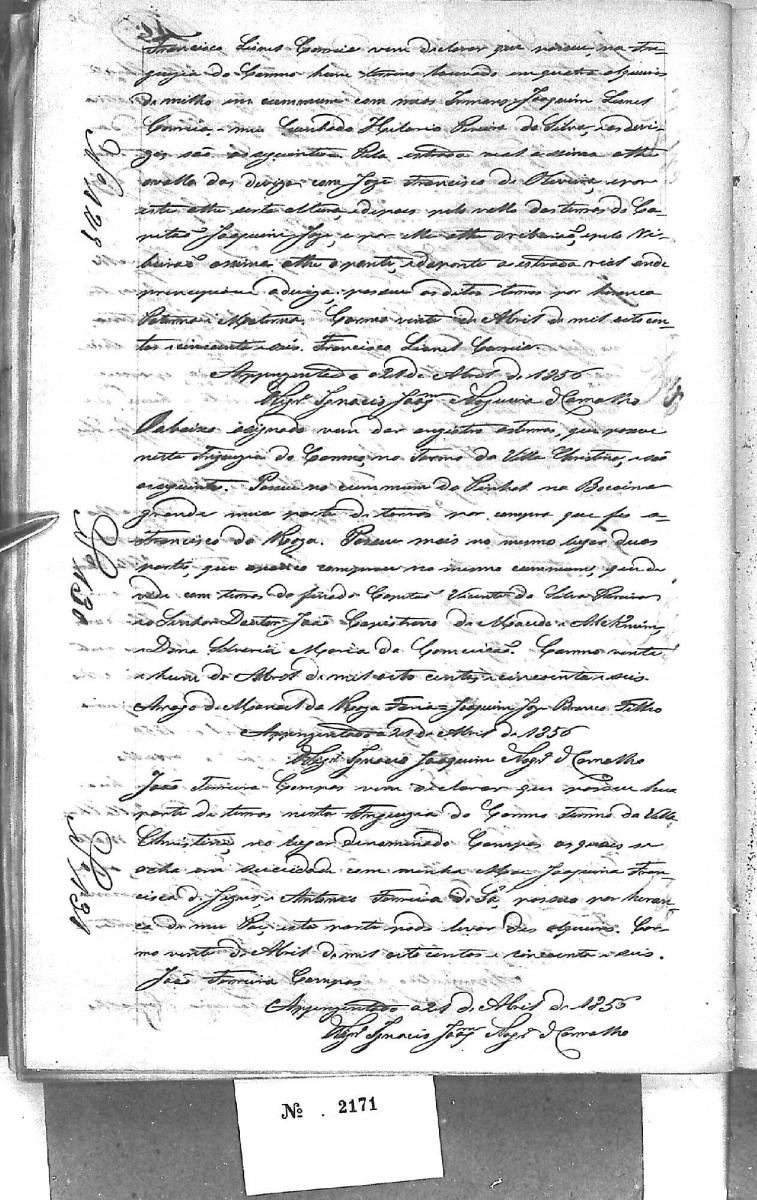 Francisco Lionel Correia vem declarar que possue na Fre-
guezia do Carmo hum terreno lavrado em quatro alqueires
de milho em cummum com meos Irmaos Joaquim Lionel
Correia, e meu Cunhado Hilario Pereira da Silva, as devi-
zas são as seguintes. Pela estrada real asima athe
o vallo das devizas com José Francisco de Oliveira, e por
este athe serta altura, e depois pelo vallo das terras do Ca-
pitão Joaquim José, e por elle athe o ribeirão, e pelo Ri-
beirão assima athe a ponte, e da ponte a estrada real onde
principiou a deviza, possue as ditas terras por herança
Paterna e Materna. Carmo vinte de Abril de mil oito cen-
tos e cincoenta e seis. Francisco Lionel Correia
Apprezentado a 21 de Abril de 1856
O Vigr.º Ignacio Joaqm. Nogueira d Carvalho
Nº 129
O abaixo assignado vem dar a registro as terras, que possue
nesta Freguezia do Carmo, no Termo da Villa Christina, e são
as seguintes. Possue no cummum do Pinhal na Bocaina
grande uma parte de terras por compra que fes a
Francisco da Roza. Possue mais no mesmo lugar duas
partes, que comprou no mesmo cummum, que de
vide com terras do finado Capitão Vicente da Silva Pereira
e o Senhor Doutor João Capistrano de Macedo e Alckmim,
e Dona Silveria Maria da Conceicão. Carmo vinte
e hum de Abril de mil oito centos e cincoenta e seis
Arogo de Manoel da Roza Faria = Joaquim José Branco Filho
Apprezentado a 21 de Abril de 1856
O Vigr.º Ignacio Joaquim Nogr.ª d Carvalho
Nº 130
João Ferreira Campos vem declarar que possue hua
parte de terras nesta Freguezia do Carmo Termo da Villa
Christina, no lugar denominado Campos as quais se
acha em suciedade com minha Mae Joaquina Fran-
cisca de Jezus, e Antonio Ferreira de Sá, possuo por heran-
ça de meu Pai, esta parte pode levar des alqueires. Car-
mo vinte de Abril de mil oito centos e cincoenta e seis.
João Ferreira Campos
Apprezentado a 21 de Abril de 1856
O Vigr.º Ignacio Joaqm. Nogr.ª d Carvalho
Nº 131
Nº . 2171